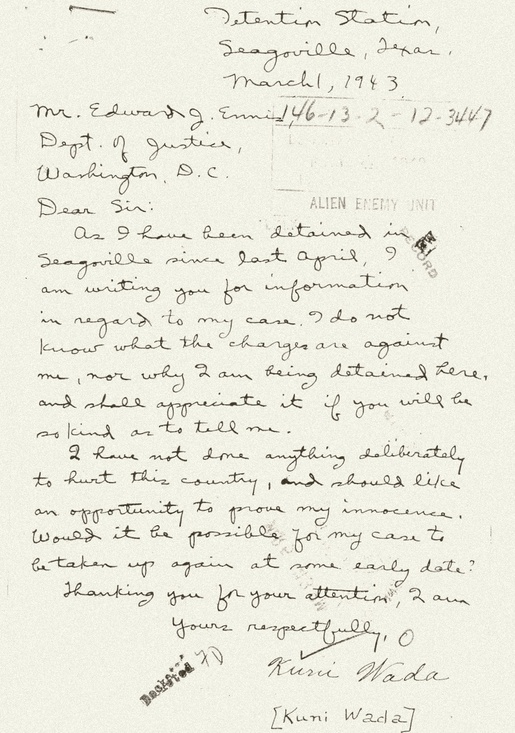 Detention Station,
Seagoville, Texas.
March 1, 1943
Mr. Edward J. Ennis, 146-13-2-12-3447
Dept. of Justice,
Washington, D.C.
ALIEN ENEMY UNIT
Dear Sir:
As I have been detained in
RECORD
Seagoville since last April, I
am writing you for information
in regard to my case. I do not
know what the charges are against
me, nor why I am being detained here,
and shall appreciate it if you will be
so kind as to tell me.
I have not done anything deliberately
to hurt this country, and should like
an opportunity to prove my innocence.
Would it be possible for my case to
be taken up again at some early date?
Thanking you for your attention, I am
Yours respectfully,
Kuni Wada
[Kuni Wada]